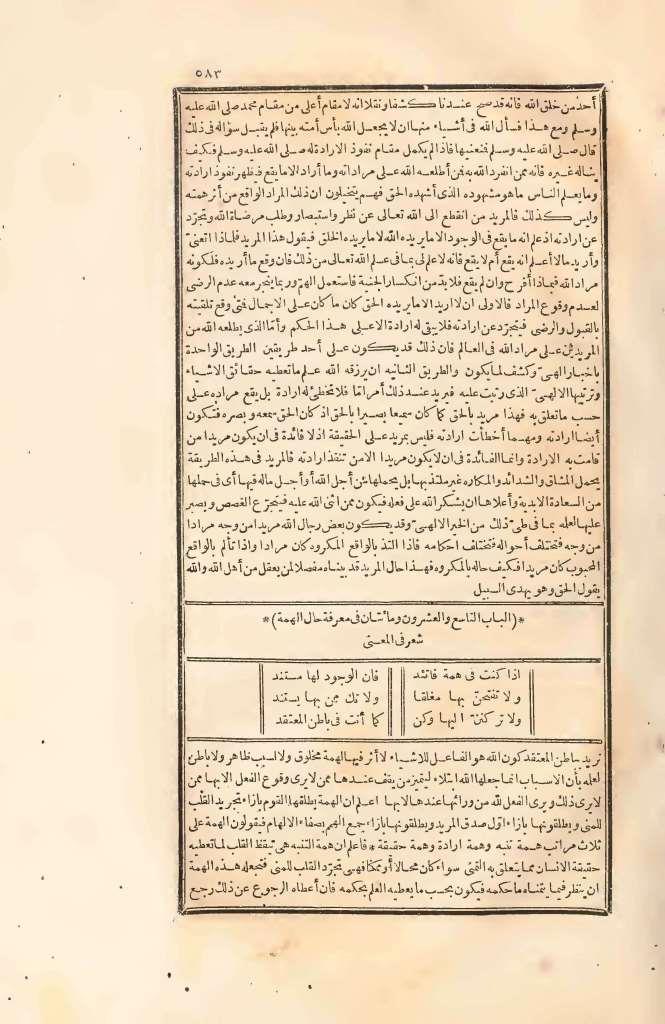 ٥٨٣
أحد من خلق الله فانه قد صح عندنا كشفا ونقلا انه لا مقام أعلى من مقام محمد صلى الله عليه
وسلم ومع هذا فسأل الله فى أشياء منها ان لا يجعل الله بأس أمته بينها فلم يقبل سؤاله فى ذلك
قال صلى الله عليه وسلم فمنعنيها فاذا لم يكمل مقام نفوذ الارادة له صلى الله عليه وسلم فكيف
يناله غيره فانه ممن انفرد الله به فمن أطلعه الله على مراداته وما أراد الا ما يقع فيظهر نفوذ ارادته
وما يعلم الناس ما هو مشهوده الذى أشهده الحق فهم يتخيلون ان ذلك المراد الواقع من أثر همته
وليس كذلك فالمريد من انقطع الى الله تعالى عن نظر واستبصار وطلب مرضاة الله وتجرّد
عن ارادته اذ علم انه ما يقع فى الوجود الا ما يريده الله لا ما يريده الخلق فيقول هذا المريد فلماذا أتعنى
وأريد ما لا أعلم انه يقع أم لا يقع فانه لا علم لى بما فى علم الله تعالى من ذلك فان وقع ما أريده فلكونه
مراد الله فبماذا أفرح وان لم يقع فلا بدّ من انكسار الخيبة فاستعمل الهم وربما ينجر معه عدم الرضى
لعدم وقوع المراد فالاولى ان لا اريد الا ما يريده الحق كان ما كان على الاجمال فمتى وقع تلقيته
بالقبول والرضى فيتجرّد عن ارادته فلا يبقى له ارادة الا على هذا الحكم وأما الذى يطلعه الله من
المريدين على مراد الله فى العالم فان ذلك قد يكون على أحد طريقين الطريق الواحدة
باخبار الهىّ وكشف لما يكون والطريق الثانية ان يرزقه الله علم ما تعطيه حقائق الاشياء
وترتيبها الالهىّ الذى رتبت عليه فيريد عند ذلك أمرا تما فلا تخطئ له ارادة بل يقع مراده على
حسب ما تعلق به فهذا مريد بالحق كما كان سميعا بصيرا بالحق اذ كان الحق سمعه وبصره فتكون
أيضا ارادته ومهما أخطأت ارادته فليس بمريد على الحقيقة اذ لا فائدة فى ان يكون مريدا من
قامت به الارادة وانما الفائدة فى ان لا يكون مريدا الا من تنفذ ارادته فالمريد فى هذه الطريقة
يحمل المشاق والشدائد والمكاره غير ملتذ بها بل يحملها من أجل الله أو أجل ماله فيها أى فى حملها
من السعادة الابدية وأعلاها ان يشكر الله على فعله فيكون ممن اثنى الله عليه فيتجرّع الغصص ويصبر
عليها لعلمه بما فى طىّ ذلك من الخير الالهىّ وقد يكون بعض رجال الله مريدا من وجه مرادا
من وجه فتختلف أحواله فتختلف احكامه فاذا التذ بالواقع المكروه كان مرادا واذا تألم بالواقع
المحبوب كان مريدا فكيف حاله بالمكروه فهذا حال المريد قد بيناه مفصلا لمن يعقل من أهل الله والله
يقول الحق وهو يهدى السبيل
*(الباب التاسع والعشرون ومائتان فى معرفة حال الهمة)*
شعر فى المعنى
اذا كنت فى همة فاتئد فان الوجود لها مستند
ولا تفتحنّ بها مغلقا ولا تك ممن بها يستند
ولا تركننّ اليها وكن كما أنت فى باطن المعتقد
نريد بباطن المعتقد كون الله هو الفاعل للاشياء لا أثر فيها لهمة مخلوق ولا لسبب ظاهر ولا باطن
لعلمه بأن الاسباب انما جعلها الله ابتلاء ليتميز من يقف عندها ممن لا يرى وقوع الفعل الا بها ممن
لا يرى ذلك ويرى الفعل لله من ورائها عندها لا بها اعلم ان الهمة يطلقها القوم بازاء تجريد القلب
للمنى ويطلقونها بازاء اوّل صدق المريد ويطلقونها بازاء جمع الهمم بصفاء الالهام فيقولون الهمة على
ثلاث مراتب همة تنبه وهمة ارادة وهمة حقيقة * فاعلم ان همة التنبه هى تيقظ القلب لما تعطيه
حقيقة الانسان مما يتعلق به التمنى سواء كان محالا أو ممكنا فهى تجرّد القلب للمنى فتجعله هذه الهمة
ان ينظر فيما يتمناه ما حكمه فيكون بحسب ما يعطيه العلم بحكمه فان أعطاه الرجوع عن ذلك رجع